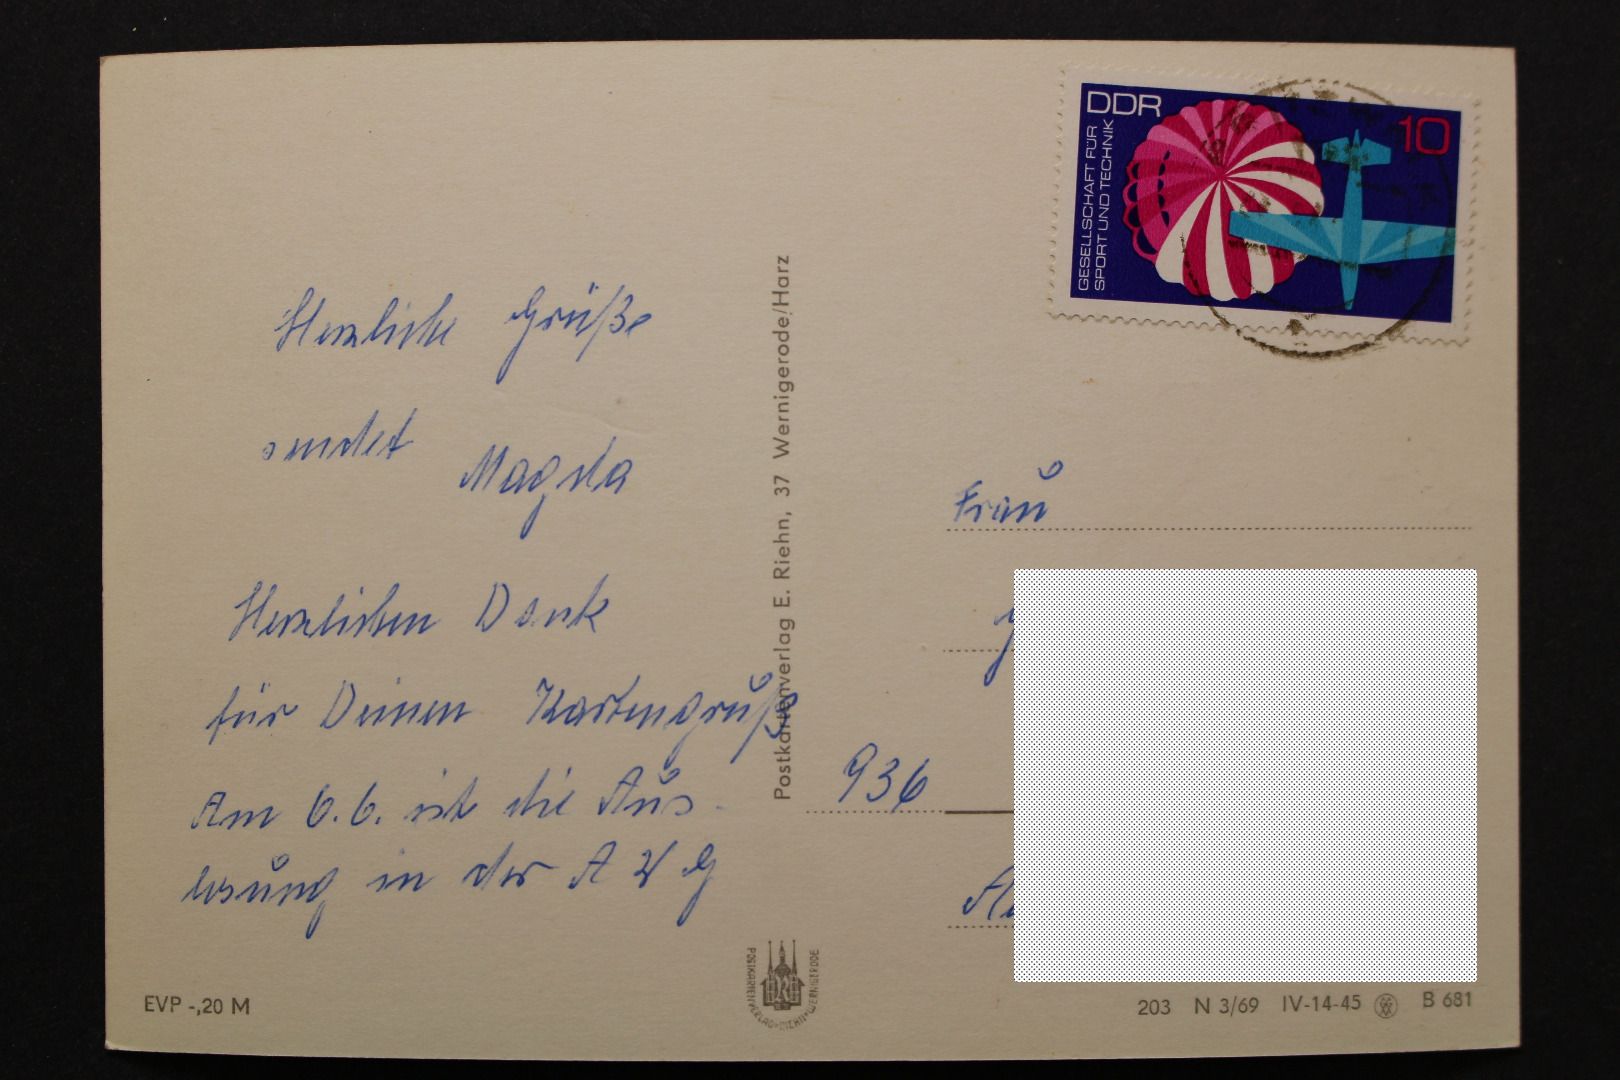 DDR
10
GESELLSCHAFT FÜR
SPORT UND TECHNIK
Herzliche Grüße
sendet
Magda
Herzlichen Dank
für Deinen Kartengruß
Am 6.6. ist die Aus-
losung in der A W G
Postkartenverlag E. Riehn, 37 Wernigerode/Harz
Frau
936
POSTKARTENVERLAG • RIEHN • WERNIGERODE
EVP -,20 M
203 N 3/69 IV-14-45 B 681